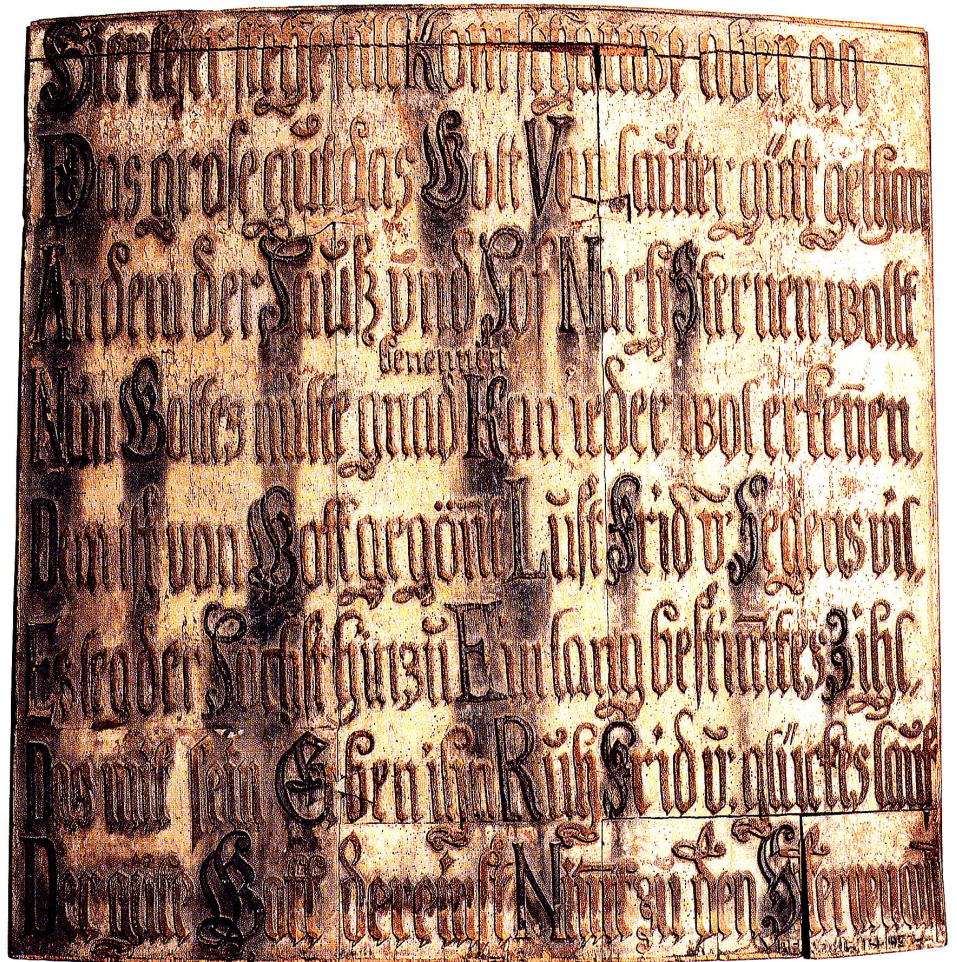 Hier leser stehe still Kom schauwe aber an
Das grose gut das Gott Von lauter gütt gethon
An dem der Saultz vnd Sot Nach Sternen wolt
benennen
Nun Gottes milte gnad Kan ieder wol erkeñen,
Dan ist von Gott gegönt Lust Frid v̄ Segens vil,
Es leg der Höchst hinzu Ein lang bestim̄tes Zihl,
Das mit sein Erben ihn Ruh Frid v̄. glückes lauf
Der güte Gott der Nun zu den Sternen auf